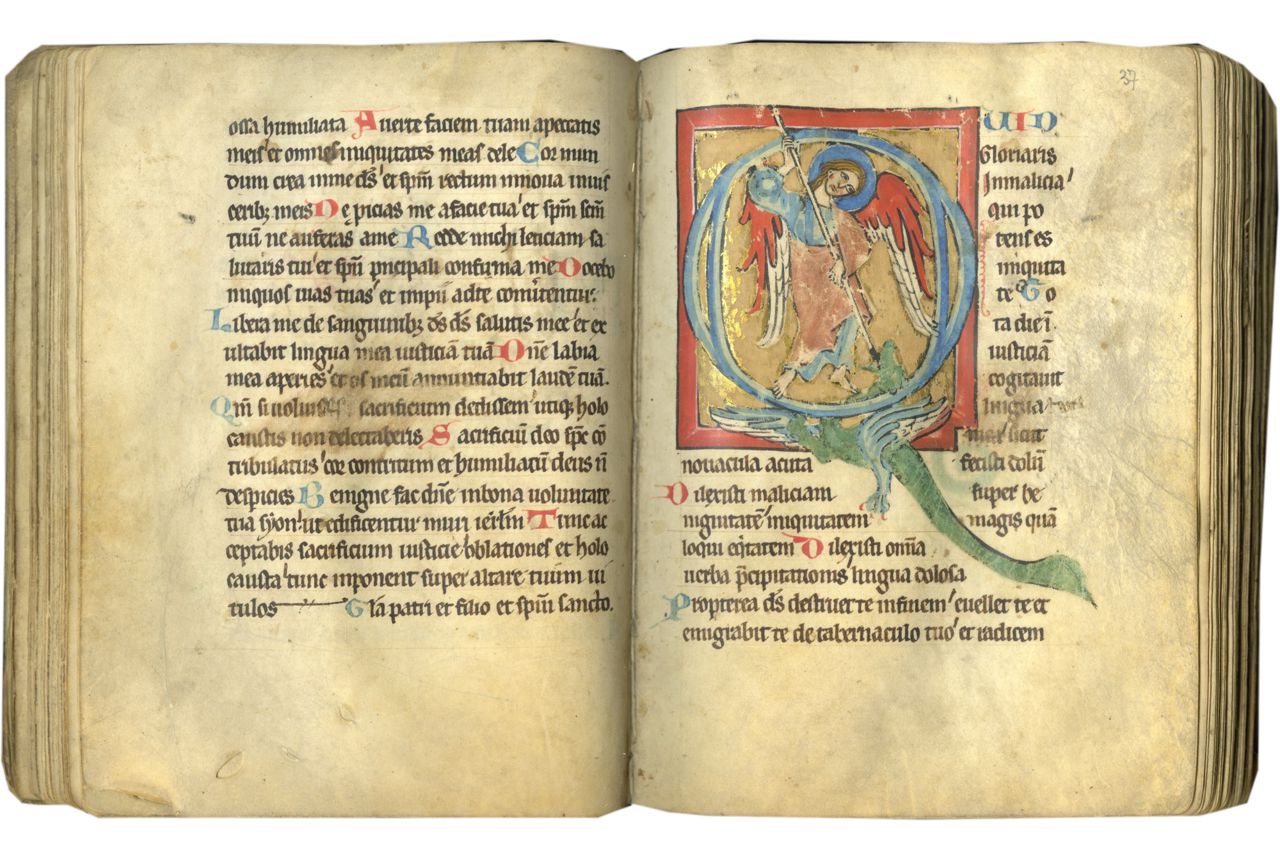 ossa humiliata Auerte faciem tuam apeccatis
meis et omnes iniquitates meas dele Cor mun
dum crea inme ds̄ et spm̄ rectum innoua inuis
ceribꝫ meis Ne ꝓicias me afacie tua et spm̄ scm̄
tuū ne auferas ame Redde michi leticiam sa
lutaris tui et spū pncipali confirma me Docebo
iniquos uias tuas et impii adte comūtentur.
Libera me de sanguinibꝫ ds̄ ds̄ salutis mee et ex
ultabit lingua mea iusticiā tuā Dn̄e labia
mea aperies et os meū annuntiabit laudē tuā.
Qm̄ si uoluisses sacrificium dedissem utiqꝫ holo
caustis non delectaberis Sacrificiū deo spc̄ cō
tribulatus cor contritum et humiliatū deus n̄
despicies Benigne fac dn̄e inbona uoluntate
tua syon ut edificentur muri ierlm̄ Tunc ac
ceptabis sacrificium iusticie oblationes et holo
causta tunc inponent super altare tuum ui
tulos Gla patri et filio et spūi sancto.
37
QUID
Gloriaris
Inmalicia
qui po
tens es
iniquita
te To
ta die ī
iusticiā
cogitauit
lingua
sicut
nouacula acuta fecisti dolū
Dilexisti maliciam super be
nignitatē iniquitatem magis quā
loqui eq̄tatem Dilexisti omīa
uerba p̄cipitationis lingua dolosa
Propterea ds̄ destruet te infinem euellet te et
emigrabit te de tabernaculo tuo et radicem